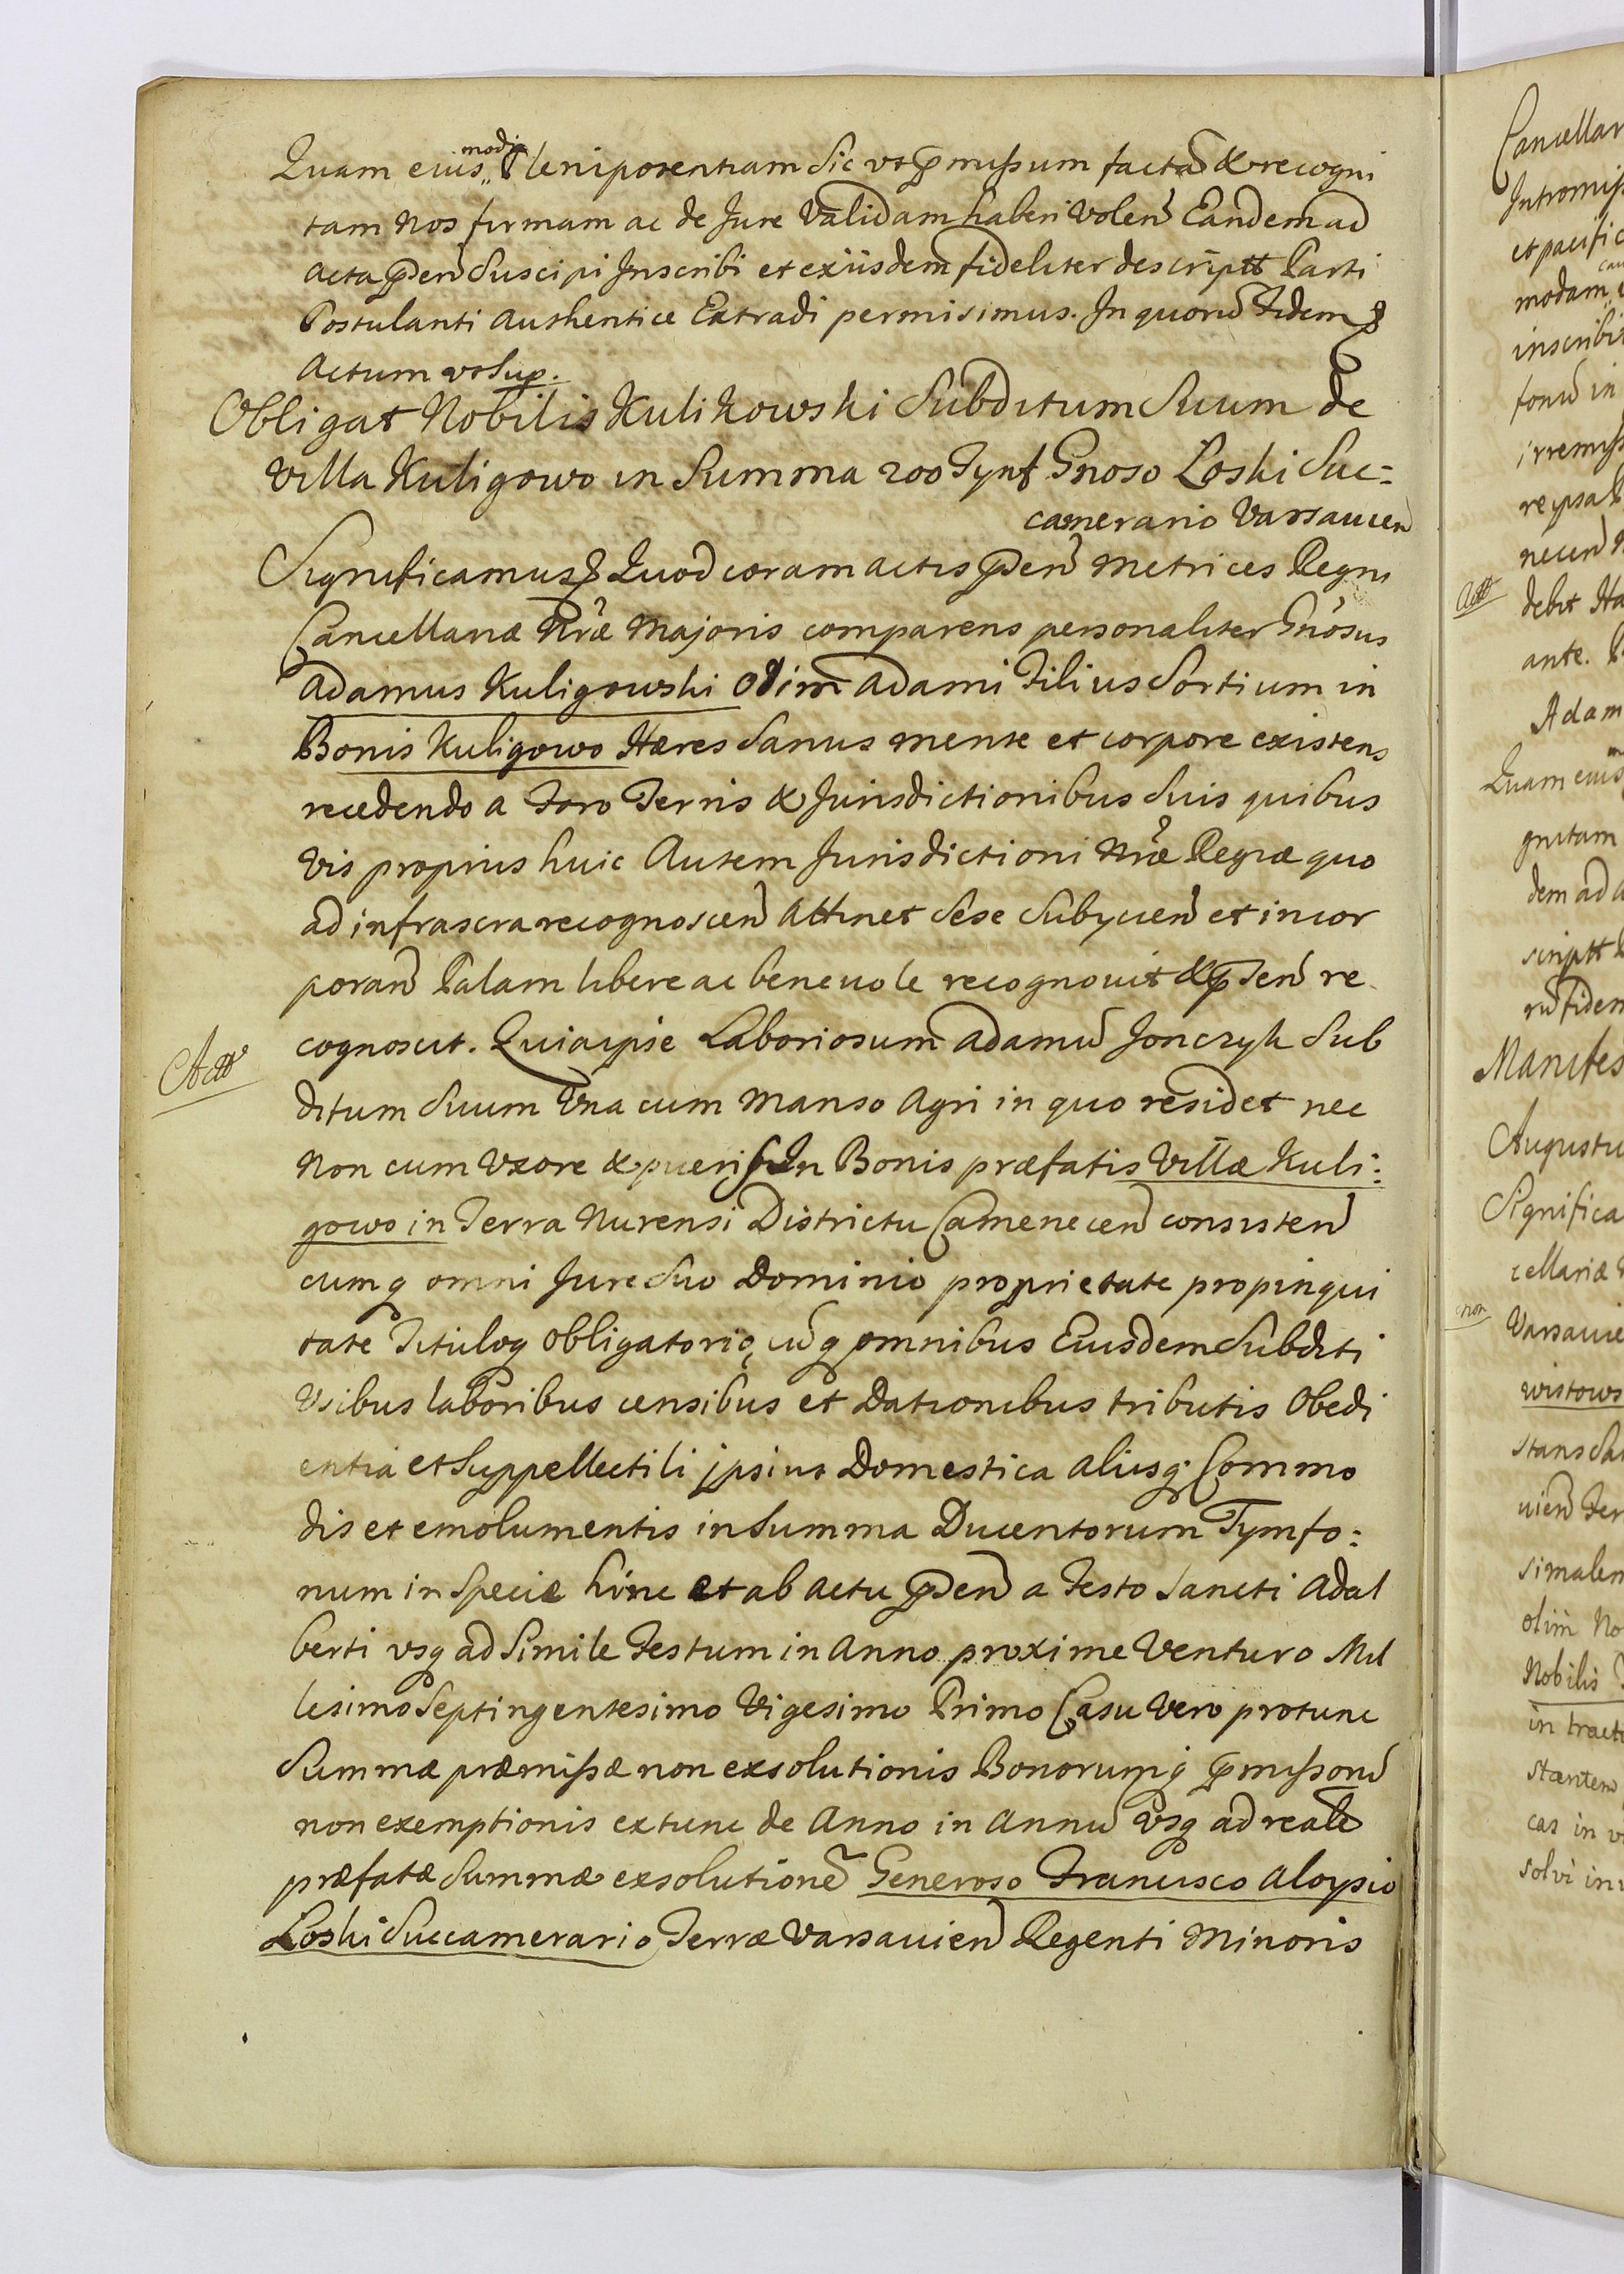 Quam eius modi Plenipotentiam Sic vt p̃missum factã & recogni
tam Nos firmam ac de Jure Validam haberi Volen̄ Eandem ad
Acta p̃sen̄ Suscipi Inscribi et ex iisdem fideliter descriptt Parti
Postulanti Authentice Extradi permisimus. In quorũ Fidem &
Actum vt Sup.
Obligat Nobilis Kulikowski Subditum Suum de
Villa Kuligowo in Summa 200 Tynf Gnoso Loski Suc=
camerario Varsauien̄
Significamus & Quod coram actis p̃sen̄ Metrices Regni
Cancellariæ Nr̃æ Majoris comparens personaliter Gnosus
Adamus Kuligowski Olim Adami Filius Sortium in
Bonis Kuligowo Hæres Sanus mente et corpore existens
recedendo a Foro Terris & Jurisdictionibus Suis quibus
Vis proprius huic Autem Jurisdictioni Nr̃æ Regiæ quo
ad infrascra recognoscen̄ Attinet Sese Subijcien̄ et incor
poran̄ Palam libere ac beneuole recognouit & p̃sen̄ re
cognoscit. Quia ipse Laboriosum Adamũ Jonczyk Sub
ditum Suum Vna cum Manso Agri in quo residet nec
Non cum Vxore & pueris In Bonis præfatis Villæ Kuli:
gowo in Terra Nurensi Districtu Camenecen̄ consisten̄
cumq omni Jure Suo Dominio proprietate propinqui
tate Tituloq Obligatorio, cũq omnibus Eiusdem Subditi
Vsibus laboribus censibus et Dationibus tributis Obedi
entia et Suppellectili ipsius Domestica Aliisq Commo
dis et emolumentis in Summa Ducentorum Tymfo:
num in Specie hinc et ab actu p̃sen̄ a Festo Sancti Adal
berti vsq ad Simile Festum in Anno proxime Venturo Mil
lesimo Septingentesimo Vigesimo Primo Casu Vero protunc
Summæ præmissæ non exsolutionis Bonorumq p̃missorũ
non exemptionis extunc de Anno in Annũ Vsq ad realẽ
præfatæ Summæ exsolutionẽ Generoso Francisco Aloysio
Loski Succamerario Terræ Varsauien̄ Regenti Minoris
Actt
Cancellar
Intromiss
et pacific
modam
inscribi
forũ in
irremiss
reipsa
necen̄
Actt
debit
ante.
Adam
Quam eius
gnitam
dem ad a
scriptt
rũ fidem
Manifes
Augustu
Significa
cellariæ
non
Varsauie
wistows
stans Sa
uien̄ Ter
simalem
olim No
Nobilis
in tractu
stantem
cas in v
solvi in